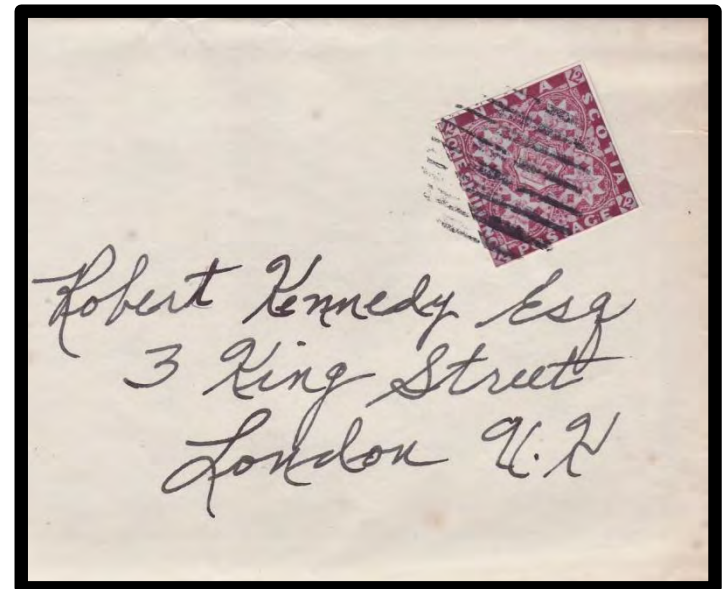 NOVA SCOTIA
12 12 12
POSTAGE
Robert Kennedy Esq
3 King Street
London U.K